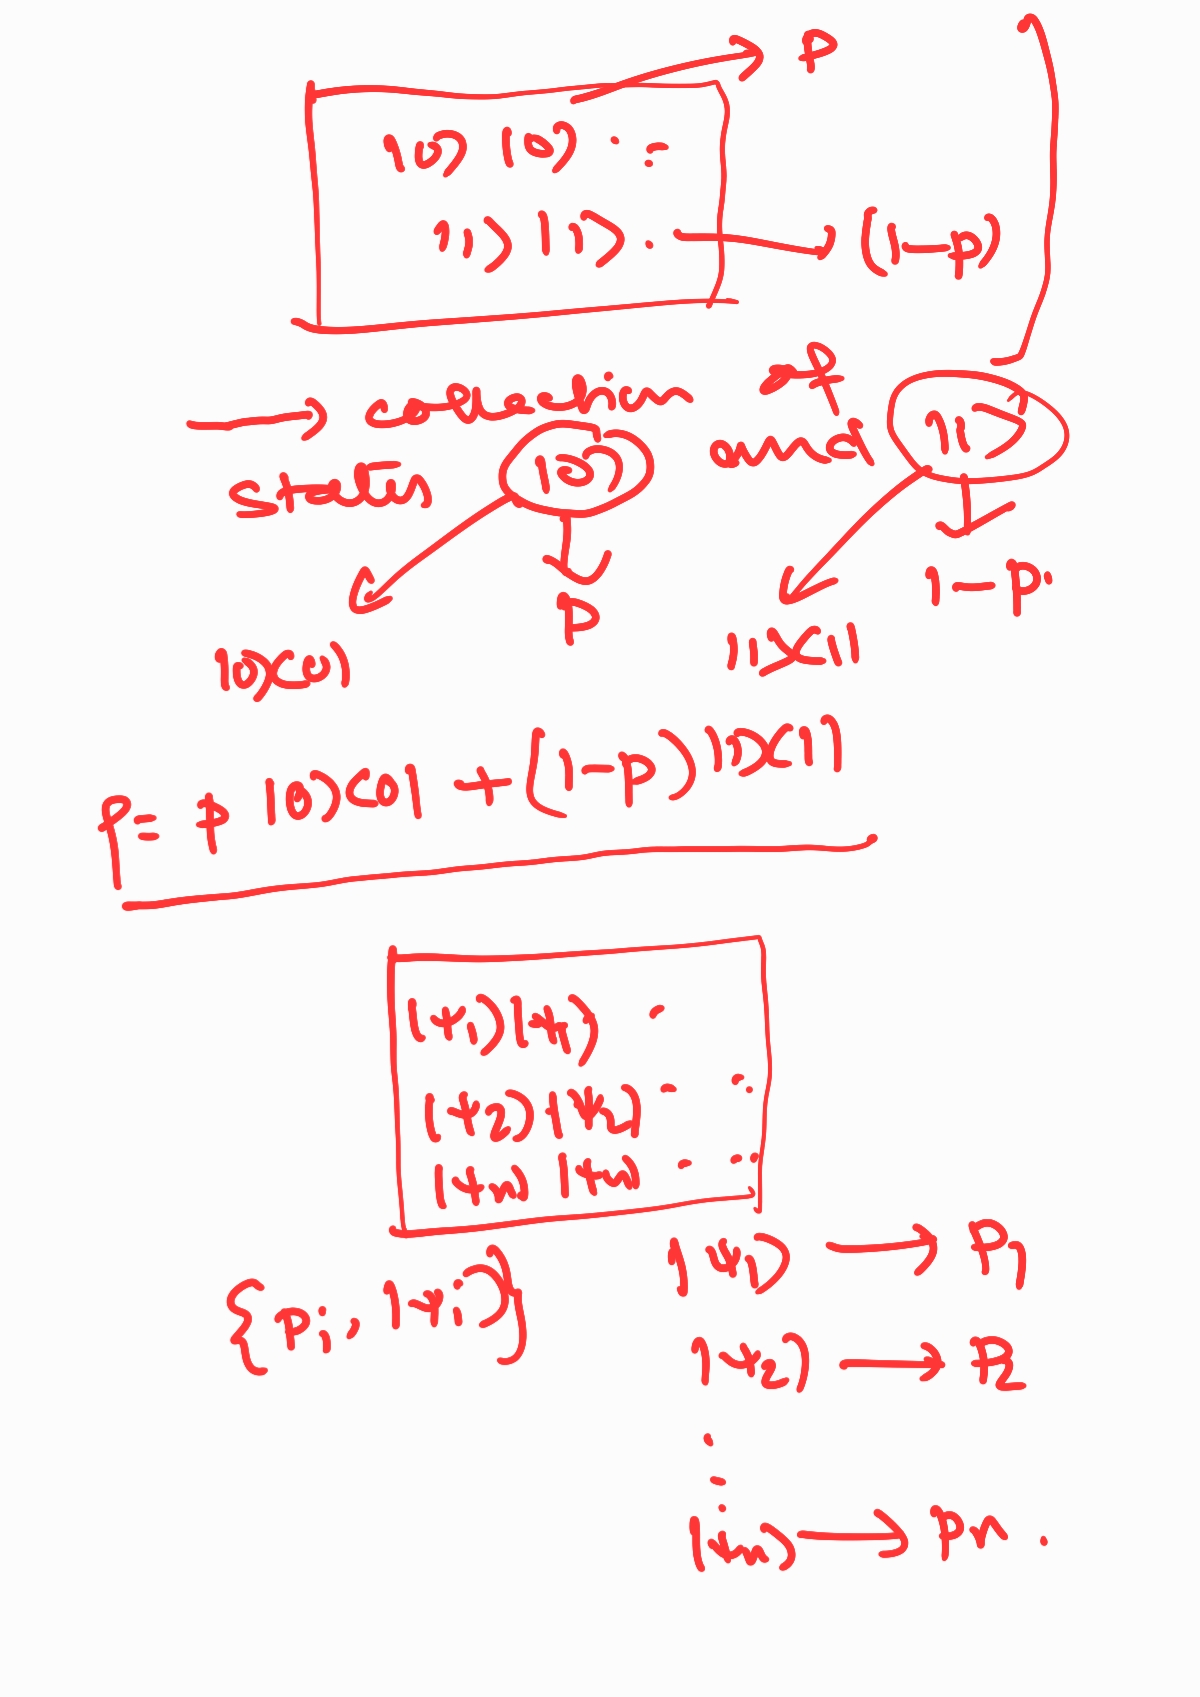 p
|0⟩ |0⟩ . . -
|1⟩ |1⟩ . (1-p)
→ collection of
states |0⟩ and |1⟩
p 1-p.
|0⟩⟨0| |1⟩⟨1|
ρ = p |0⟩⟨0| + (1-p) |1⟩⟨1|
|ψ1⟩ |ψ1⟩ .
|ψ2⟩ |ψ2⟩ - . .
|ψn⟩ |ψn⟩ - . .
{pi, |ψi⟩} |ψ1⟩ → P1
|ψ2⟩ → P2
. . .
|ψn⟩ → pn .